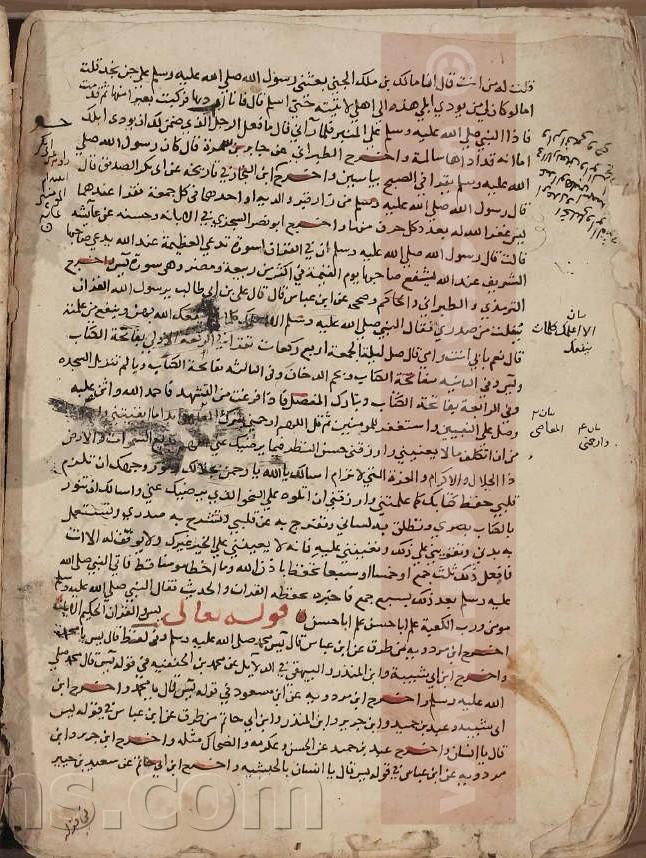 قلت له من انت قال انا مالك بن ملك الجني بعثني رسول الله صلى الله عليه وسلم على جن نجد قلت
اما لو كان لي من يودي ابلي هذه الى اهلي لاتيته حتى اسلم قال فانا اوديها فركبت بعيرا منها ثم قدمت
فاذا النبي صلى الله عليه وسلم على المنبر فلما رآني قال ما فعل الرجل الذي ضمن لك ان يودي ابلك
اما انه قد اداها سالمة واخرج الطبراني عن جابر بن سمرة قال كان رسول الله صلى
الله عليه وسلم يقرا في الصبح بياسين واخرج ابن النجار في تاريخه عن ابي بكر الصديق قال
قال رسول الله صلى الله عليه وسلم من زار قبر والديه او احدهما في كل جمعة فقرا عندهما
يس غفر الله له بعدد كل حرف منها واخرج ابو نصر السجزي في الابانة وحسنه عن عائشة
قالت قال رسول الله صلى الله عليه وسلم ان في القران لسورة تدعى العظيمة عند الله يدعى صاحبها
الشريف عند الله يشفع صاحبها يوم القيمة في اكثر من ربيعة ومضر وهي سورة يس واخرج
الترمذي والطبراني والحاكم وصححه عن ابن عباس قال قال علي بن ابي طالب يرسول الله القران
يتفلت من صدري فقال النبي صلى الله عليه وسلم الا اعلمك كلمات ينفعك الله بهن وينفع من علمته
قال نعم بابي انت وامي قال صل ليلة الجمعة اربع ركعات تقرا في الركعة الاولى بفاتحة الكتاب
ويس وفي الثانيه بفاتحة الكتاب وبحم الدخان وفي الثالثه بفاتحة الكتاب وبالم تنزيل السجده
وفي الرابعة بفاتحة الكتاب وتبارك المفصل فاذا فرغت من التشهد فاحمد الله واثن عليه
وصل على النبيين واستغفر للمومنين ثم قل اللهم ارحمني بترك المعاصي ابدا ما ابقيتني
من ان اتكلف ما لا يعنيني وارزقني حسن النظر فيما يرضيك عني بديع السموات والارض
ذا الجلال والاكرام والعزة التي لا ترام اسالك يا الله يا رحمن بجلالك ونور وجهك ان تلزم
قلبي حفظ كتابك كما علمتني وارزقني ان اتلوه على النحو الذي يرضيك عني واسالك ان تنور
بالكتاب بصري وتطلق به لساني وتفرج به عن قلبي وتشرح به صدري وتستعمل
به بدني وتقويني على ذلك وتعينني عليه فانه لا يعينني على الخير غيرك ولا يوفق له الا انت
فافعل ذلك ثلث جمع او خمسا او سبعا تحفظه باذن الله وما اخطا مومنا قط فاتي النبي صلى الله
عليه وسلم بعد ذلك بسبع جمع فاخبره بحفظه القران والحديث فقال النبي صلى الله عليه وسلم
مومن ورب الكعبة علم ابا حسن علم ابا حسن قوله تعالى يس والقران الحكيم الايات
اخرج ابن مردويه من طرق عن ابن عباس قال يس محمد صلى الله عليه وسلم وفي لفظ قال يا محمد
واخرج ابن ابي شيبة وابن المنذر والبيهقي في الدلايل عن محمد بن الحنفيه في قوله يس قال محمد صلى
الله عليه وسلم واخرج ابن مردويه عن ابن مسعود في قوله يس قال يا محمد واخرج ابن
ابي شيبه وعبد بن حميد وابن جرير وابن المنذر وابن ابي حاتم من طرق عن ابن عباس في قوله يس
قال يا انسان واخرج عبد بن حميد عن الحسن وعكرمه والضحاك مثله واخرج ابن جرير وابن
مردويه عن ابن عباس في قوله يس قال يا انسان بالحبشيه واخرج ابن ابي حاتم عن سعيد بن جبير
بيان
الا اعلمك كلمات
ينفعك
بيان
المعاصي
بيان
وارحمني
في قوله
ms.com